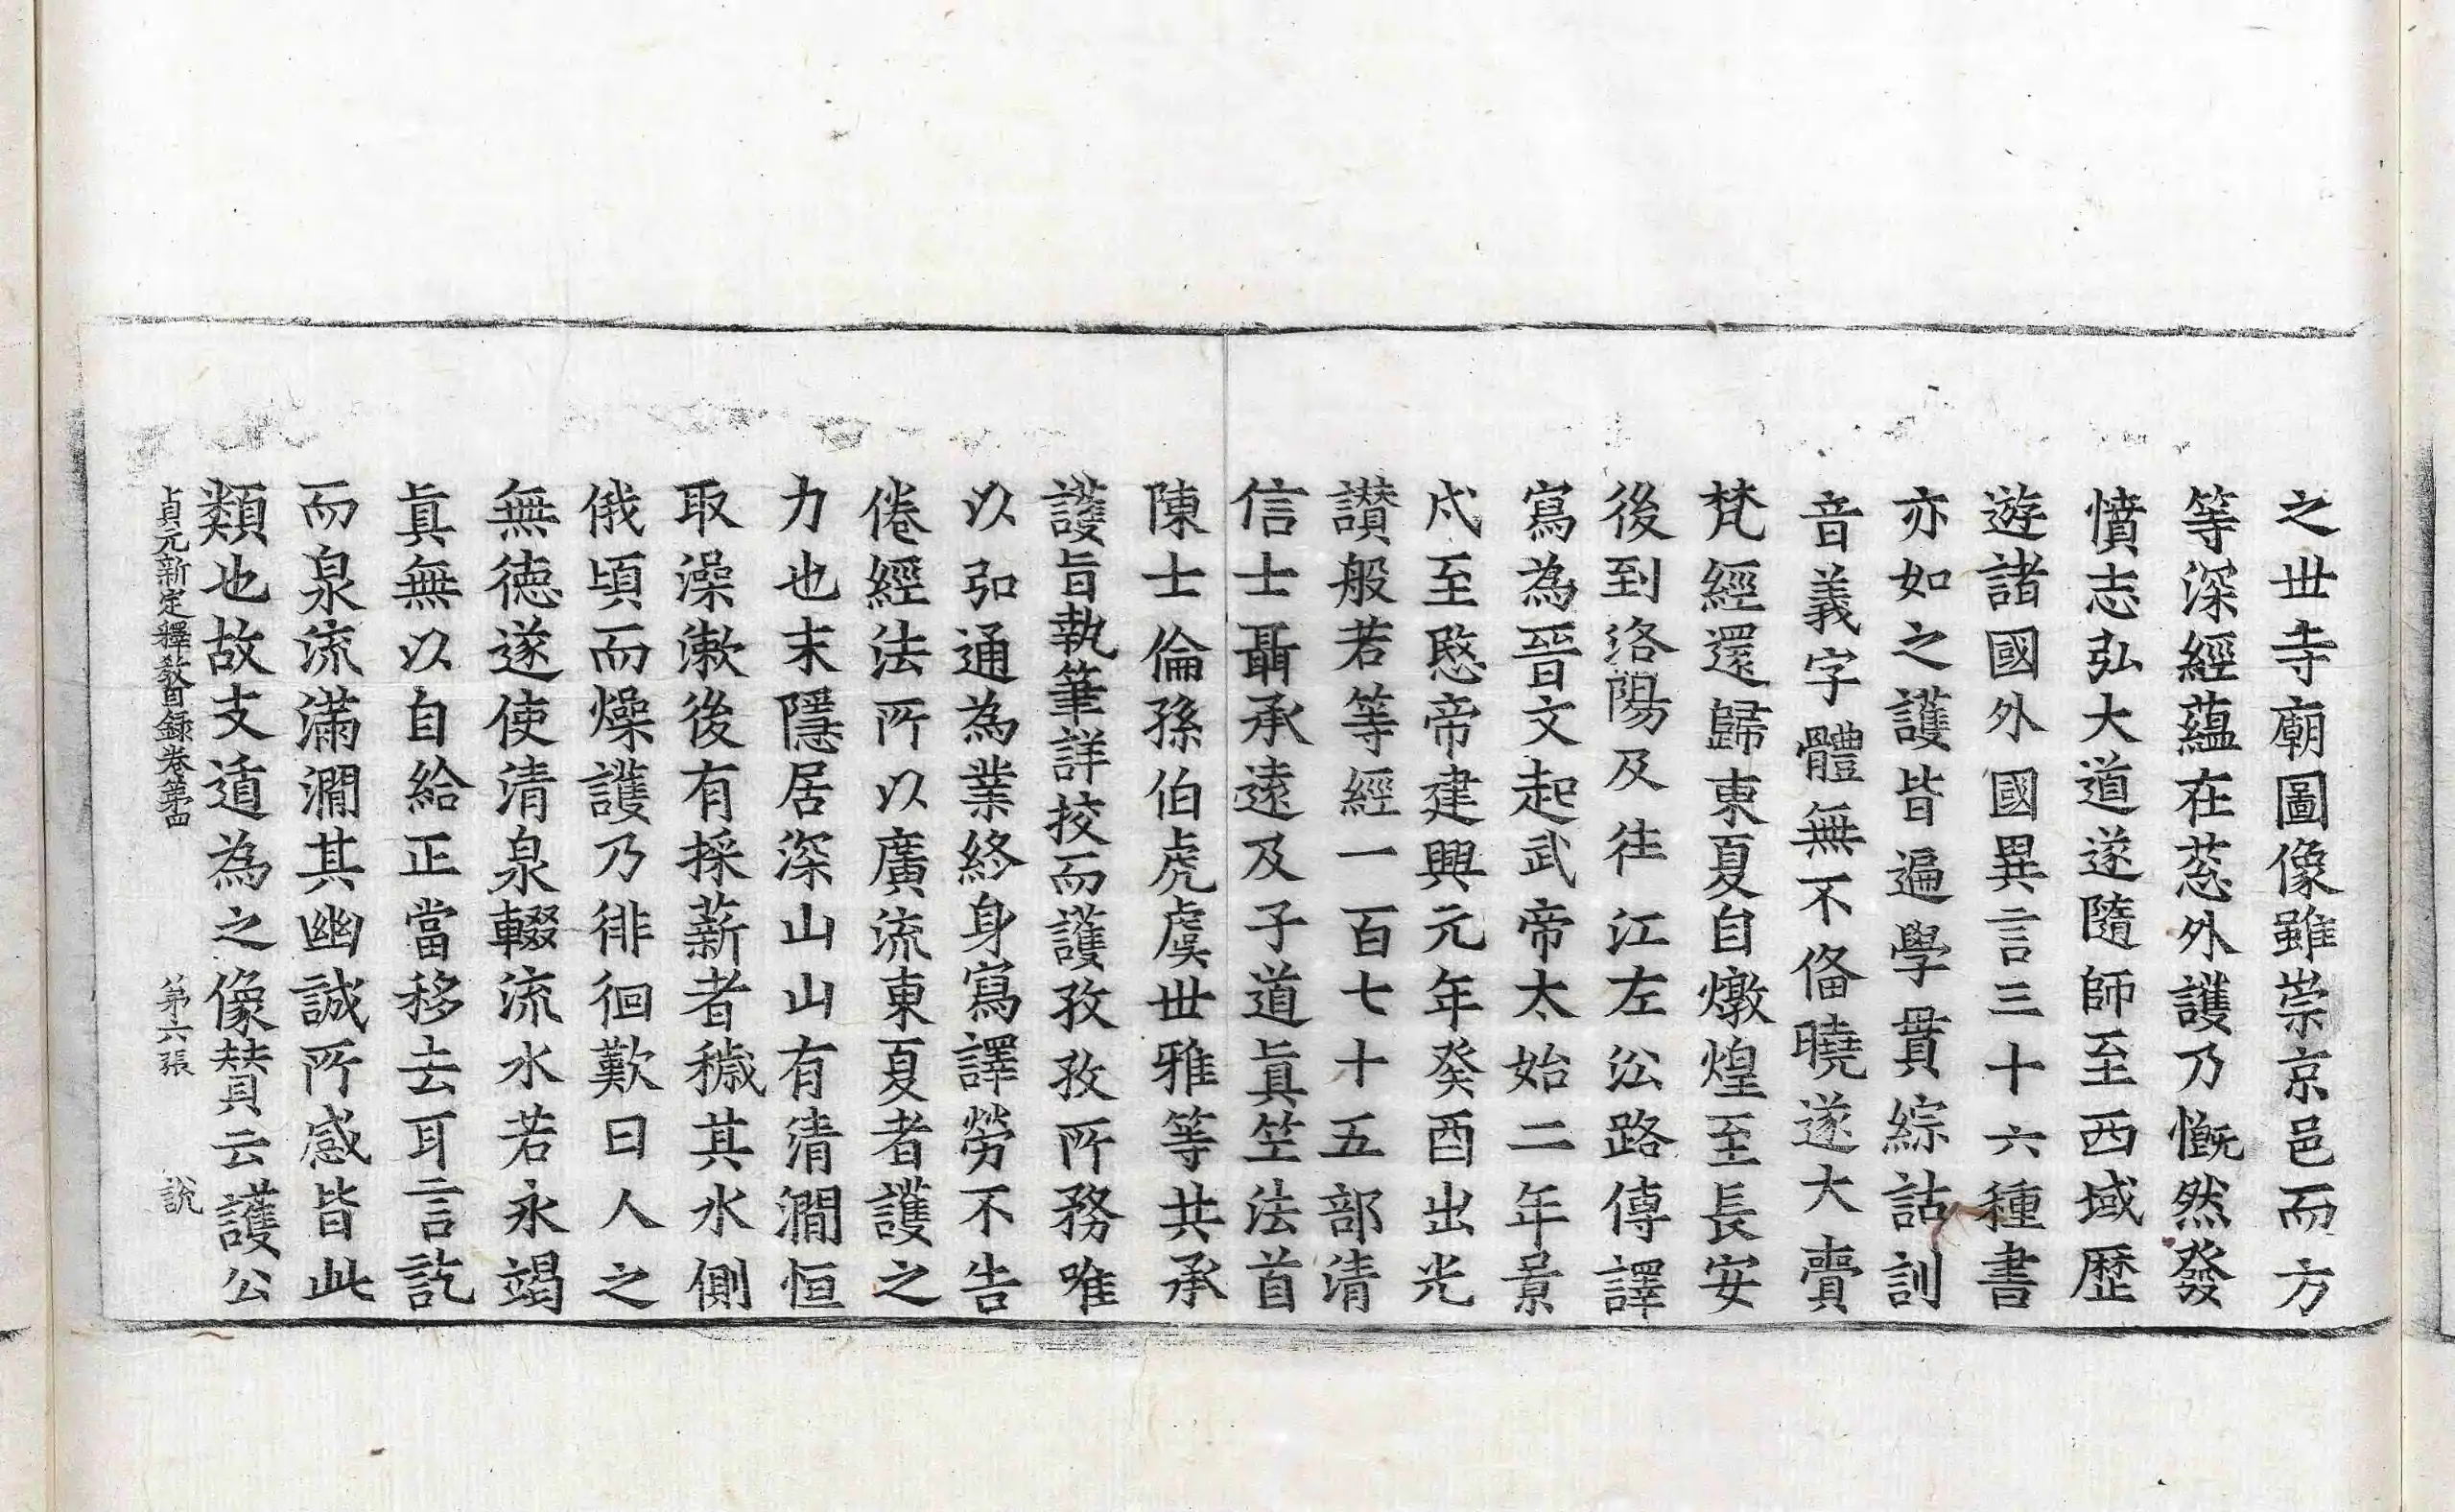 之世寺廟圖像雖崇京邑而方
等深經蘊在葱外護乃慨然發
憤志弘大道遂隨師至西域歷
遊諸國外國異言三十六種書
亦如之護皆遍學貫綜詁訓
音義字體無不俻曉遂大賷
梵經還歸東夏自燉煌至長安
後到洛陽及往江左㳂路傳譯
寫為晉文起武帝太始二年景
戍至愍帝建興元年癸酉出光
讃般若等經一百七十五部清
信士聶承遠及子道眞竺法首
陳士倫孫伯虎虞世雅等共承
護旨執筆詳挍而護孜孜所務唯
以弘通為業終身寫譯勞不告
倦經法所以廣流東夏者護之
力也末隱居深山山有清澗恒
取澡漱後有採薪者穢其水側
俄頃而燥護乃徘徊歎曰人之
無德遂使清泉輟流水若永竭
眞無以自給正當移去耳言訖
而泉流滿澗其幽誠所感皆此
類也故支遁為之像賛云護公
貞元新定釋教目録卷第四 第六張 說